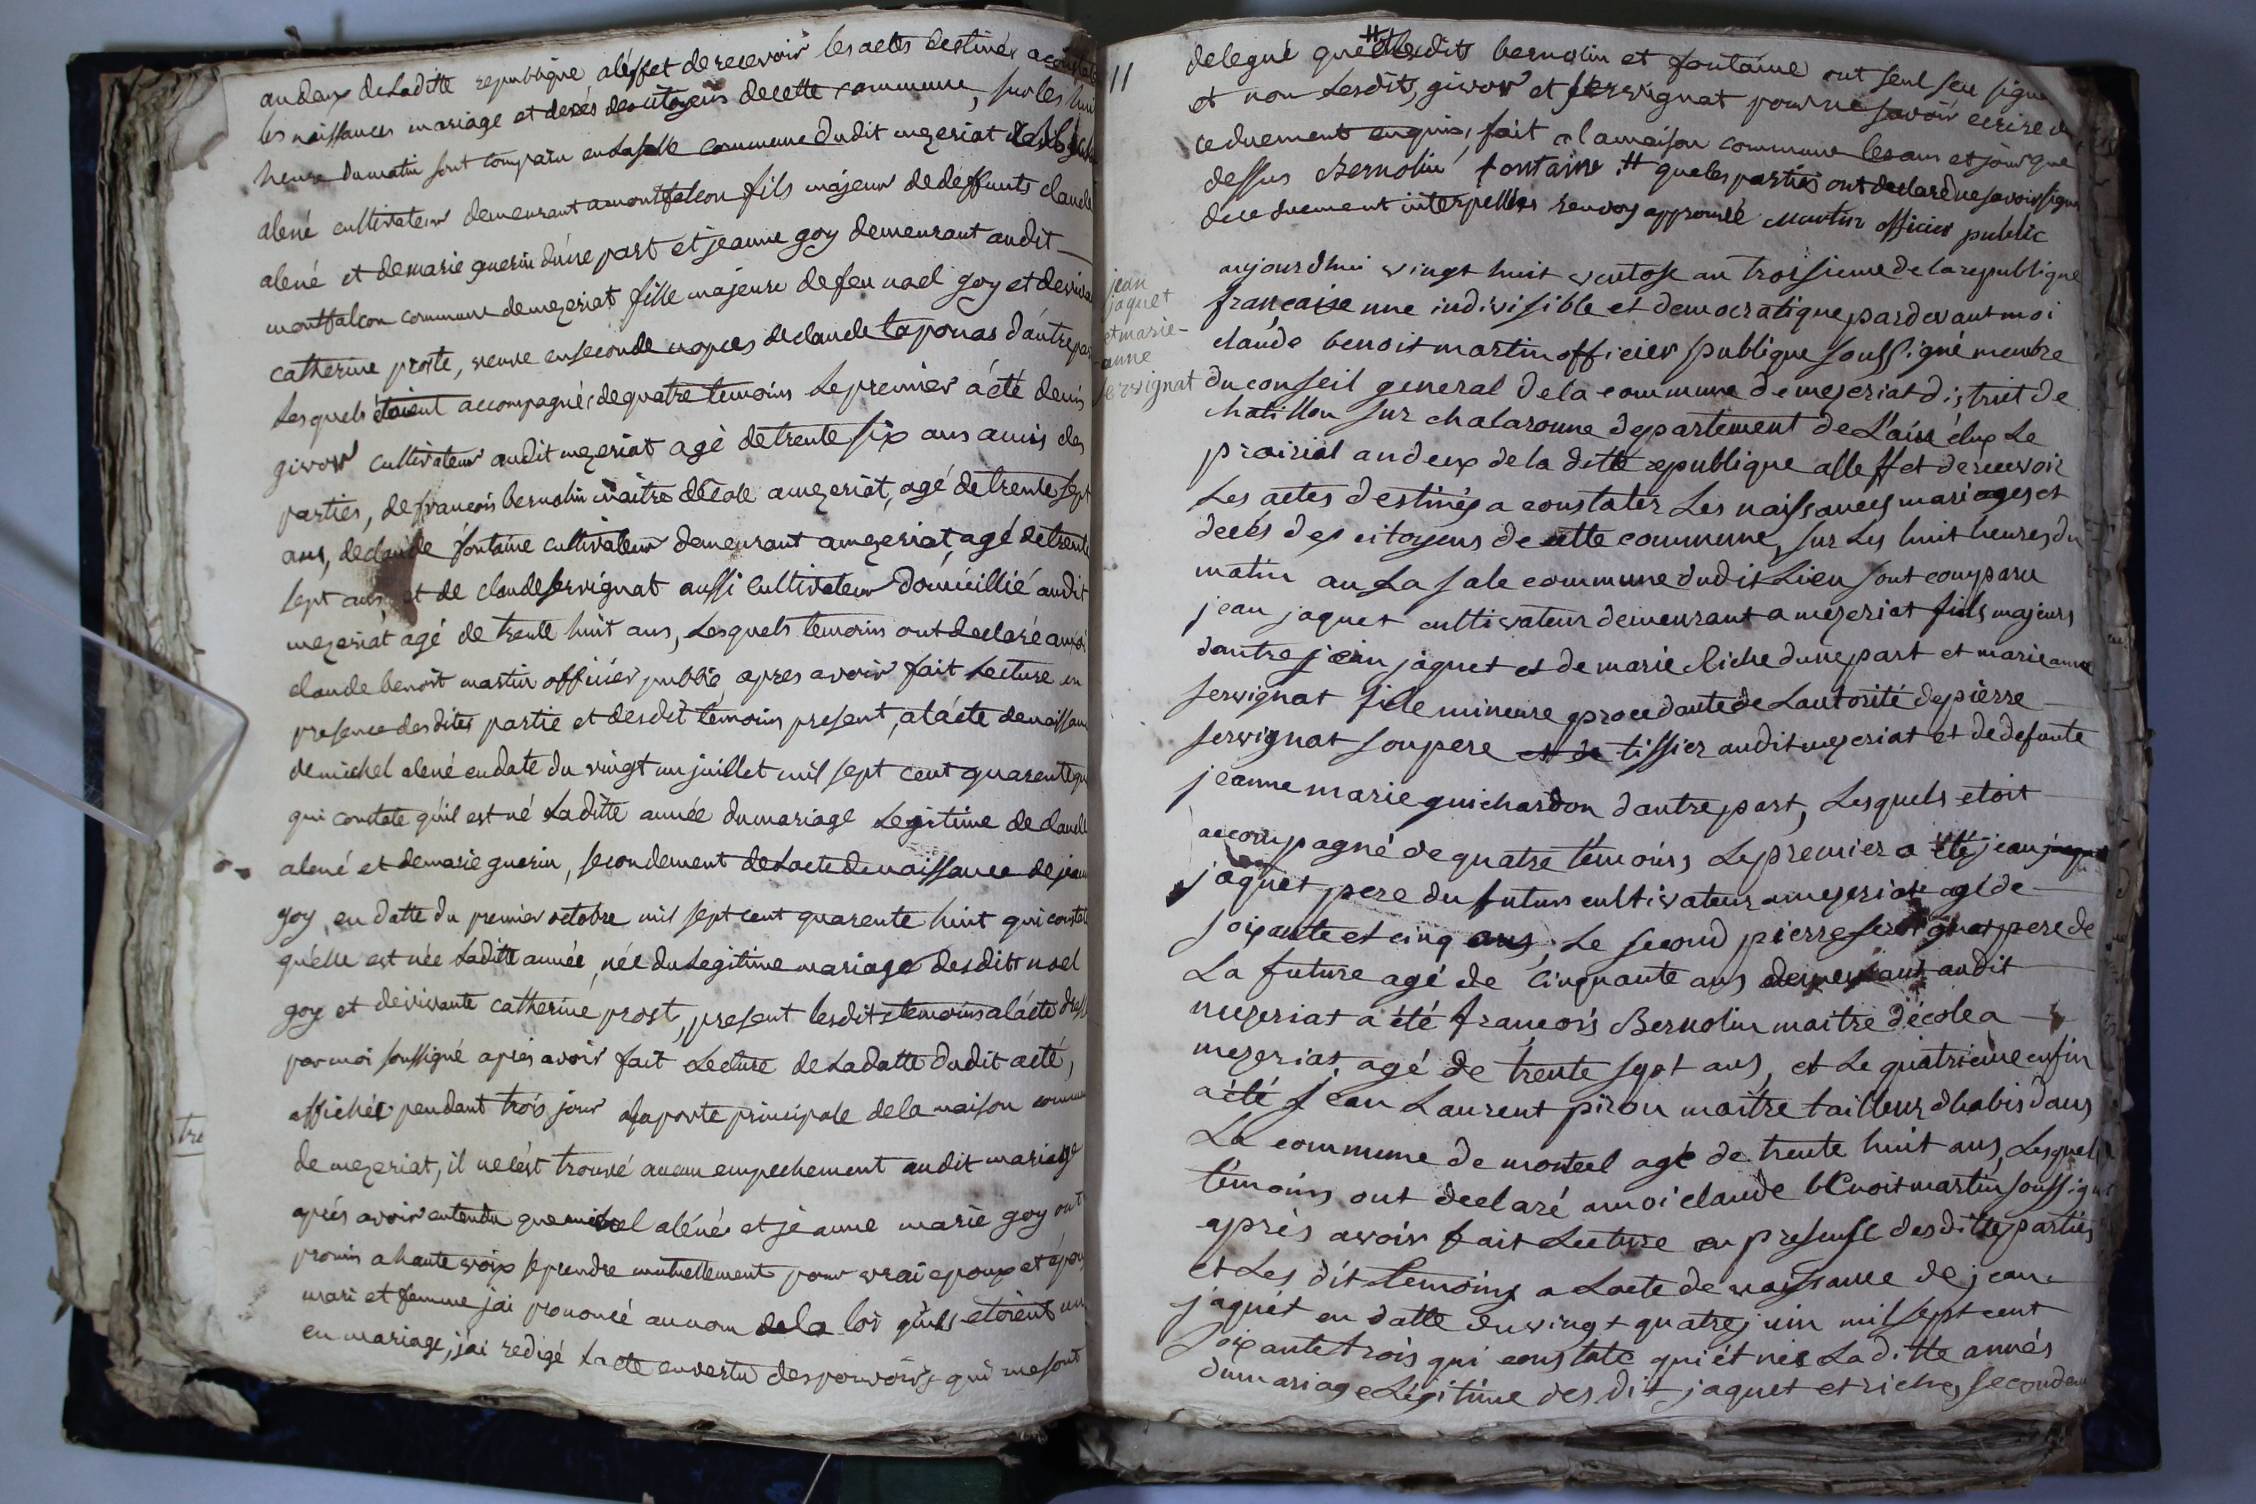 an deux de Laditte republique a léffet de recevoir les actes destinés a constater
les naissances mariage et decés des citoyens de cette commune, sur les huit
heure du matin sont comparu en La salle commune dudit mezeriat
alené cultivateur demeurant a montfalcon fils májeur de deffunts claude
alené et de marie guerin dúne part et jeanne goy demeurant audit
montfalcon commune de mezeriat fille majeure de feu noel goy et de vivante
catherine proste, veuve en seconde nopces de claude taponas dáutre part
Lesquels étoient accompagnés de quatre temoins Le premier a été denis
givor cultivateur audit mezeriat agé de trente six ans amis des
parties, de françois bernolin maitre décole a mezeriat, agé de trente sept
ans, de claude fontaine cultivateur demeurant a mezeriat, agé de trente
sept ans et de claude servignat aussi cultivateur domicillié audit
mezeriat agé de trente huit ans, Lesquels temoins ont declaré a moi
claude benoit martin officier public, apres avoir fait Lecture en
presence desdites partie et desdit temoins present, a lácte de naissance
de michel alené en date du vingt un juillet mil sept cent quarente
qui constate qúil est né Laditte année du mariage Legitime de claude
alené et de marie guerin, secondement de Lacte de naissance de jeanne
goy, en datte du premier octobre mil sept cent quarente huit qui constate
qúelle est née Laditte année, née du Legitime mariage desdits noel
goy et de vivante catherine prost, present lesdits temoins a lácte dressé
par moi soussigné aprés avoir fait Lecture de La datte dudit acté,
affichée pendant trois jour a la porte principale de la maison commune
de mezeriat, il ne cést trouvé aucun empechement audit mariage
aprés avoir entendu que michel aléné et jeanne marie goy ont
promis a haute voix se prendre mutuellement pour vrai epoux et epouse
mari et femme jai prononcé au nom de la loi qúils etoient unis
en mariage, jái redigé Lacte en vertu des pouvoirs qui me sont
11
delegué que lesdits bernolin et fontaine ont seul seu signer
et non Lesdits, givor et servignat pour ne savoir ecrire de
ce duement enquis, fait a la maison commune les an et jour que
dessus Bernolin fontaine # que les parties ont declaré ne savoir signer
de ce duement interpellés renvoy approuvé Martin officier public
jean
jaquet
et marie-
anne
servignat
aujourdhui vingt huit ventose an troisieme de la republique
française une indivisible et democratique par devant moi
claude benoit martin officier publique soussigné membre
du conseil general de la commune de mezeriat district de
chatillon sur chalaronne departement de Lain élup Le
prairial an deux de la ditte republique alleffet de recevoir
Les actes destinés a constater Les naissances mariages et
decés des citoyens de cette commune, sur Les huit heures du
matin au La sale commune dudit Lieu sont comparu
jean jaquet cultivateur demeurant a mezeriat fids majeurs
dautre jean jaquet et de marie Riche dune part et marie anne
servignat file mineure procedante de Lautorité de pierre
servignat son pere et de tissier audit mezeriat et de defunte
jeanne marie guichardon dautre part, Lesquels etoit
accompagné de quatre temoins Le premier a été jean jaquet
jaquet pere du futur cultivateur a mezeriat agé de
soixante et cinq ans, Le second pierre servignat pere de
La future agé de Cinquante ans demeurant audit
mezeriat a été françois Bernolin maitre décole a
mezeriat, agé de trente sept ans, et Le quatrieme enfin
a été jean Laurent piron maitre tailleur dhabis dans
La commune de montcel agé de trente huit ans, Lesquels
témoins ont declaré a moi claude bEnoit martin soussigné
après avoir fait Lecture en presense desditte parties
et Les dit temoins a Lacte de naissance de jean
jaquét en datte du vingt quatre juin mil sept cent
soixante trois qui constate qui ét née La ditte annés
du mariage Légitime des dit jaquet et riche, secondem